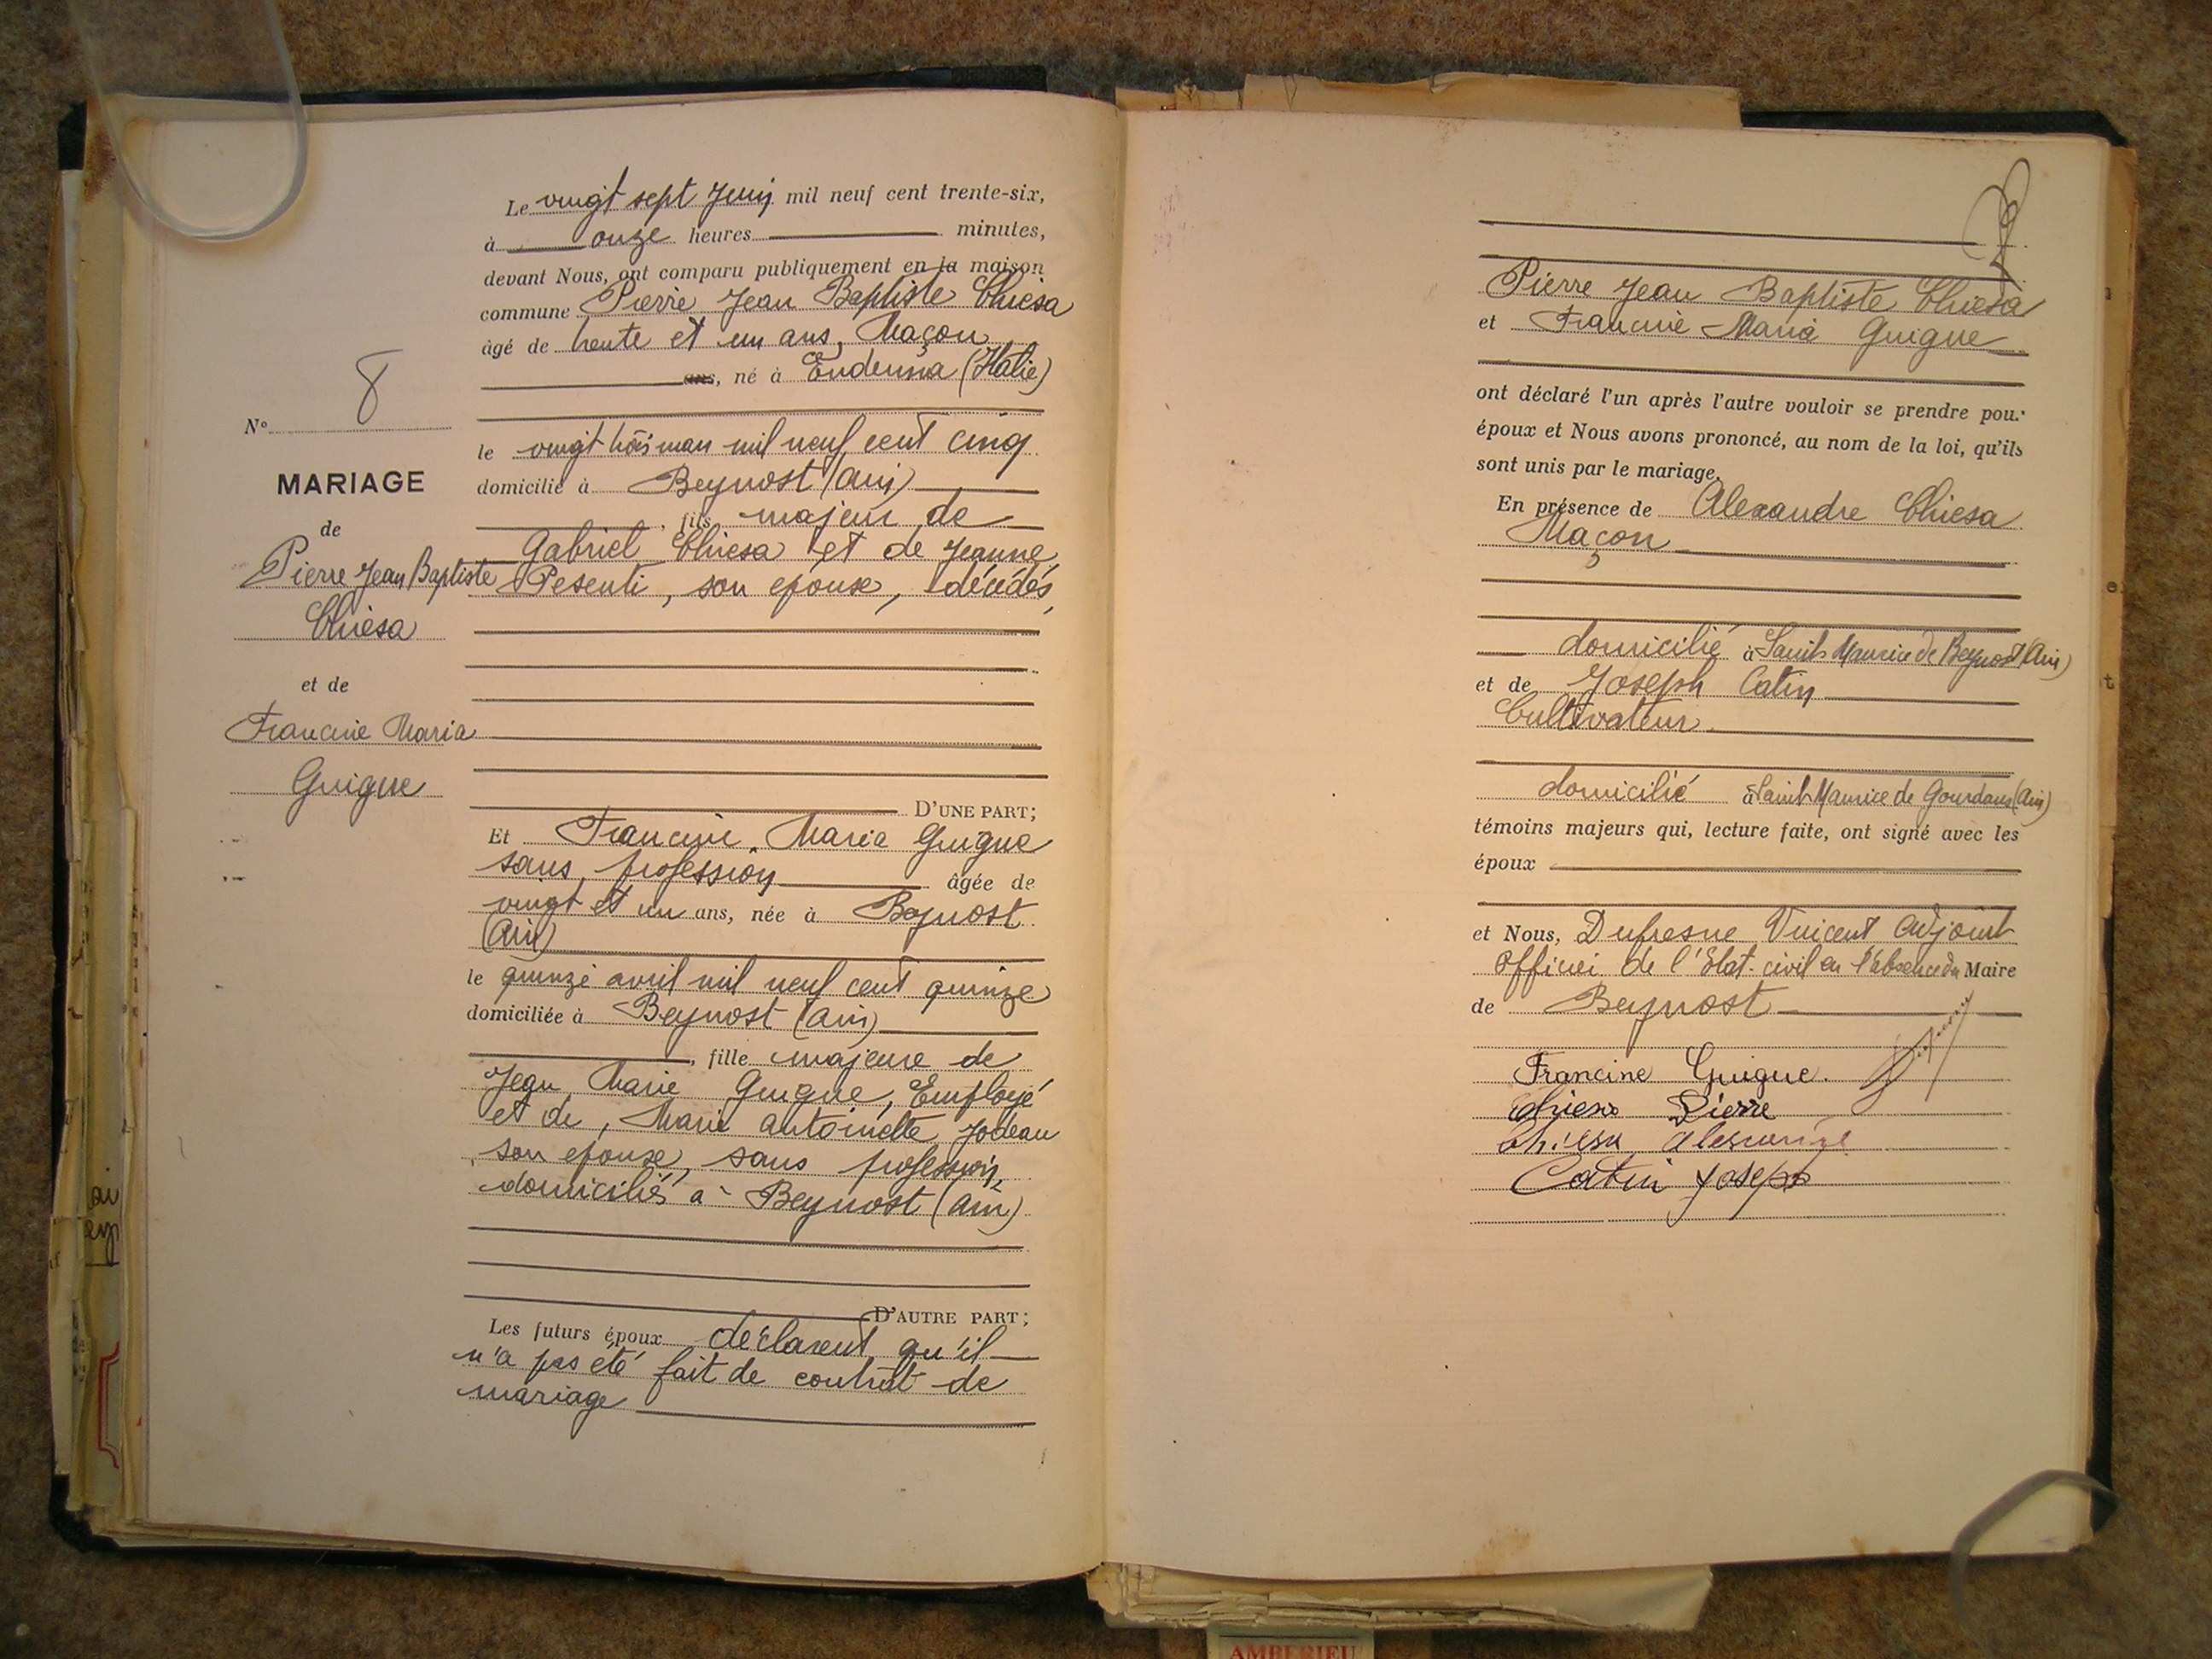 Le vingt sept Juin mil neuf cent trente-six,
à onze heures minutes,
devant Nous, ont comparu publiquement en la maison
commune Pierre Jean Baptiste Chiesa
âgé de trente et un ans, Maçon
ans, né à Endenna (Italie)
le vingt trois mars mil neuf cent cinq
domicilié à Beynost (Ain)
, fils majeur de
Gabriel Chiesa et de Jeanne
Pesenti, son épouse, décédés,
D'UNE PART;
Et Francine Maria Guigue
sans profession âgée de
vingt et un ans, née à Beynost
(Ain)
le quinze avril mil neuf cent quinze
domiciliée à Beynost (Ain)
, fille majeure de
Jean Marie Guigue, Employé
et de, Marie Antoinette Jodeau
son épouse, sans profession,
domiciliés à Beynost (Ain)
D'AUTRE PART;
Les futurs époux déclarent qu'il
n'a pas été fait de contrat de
mariage
N° 8
MARIAGE
de
Pierre Jean Baptiste
Chiesa
et de
Francine Maria
Guigue
Pierre Jean Baptiste Chiesa
et Francine Maria Guigue
ont déclaré l'un après l'autre vouloir se prendre pour
époux et Nous avons prononcé, au nom de la loi, qu'ils
sont unis par le mariage.
En présence de Alexandre Chiesa
Maçon
domicilié à Saint Maurice de Beynost (Ain)
et de Joseph Catin
Cultivateur
domicilié à Saint Maurice de Gourdans (Ain)
témoins majeurs qui, lecture faite, ont signé avec les
époux
et Nous, Dufresne Vincent Adjoint
Officier de l'Etat-civil en l'absence du Maire
de Beynost
Francine Guigue.
Chiesa Pierre
Chiesa
Catin Joseph
AMBERIEU